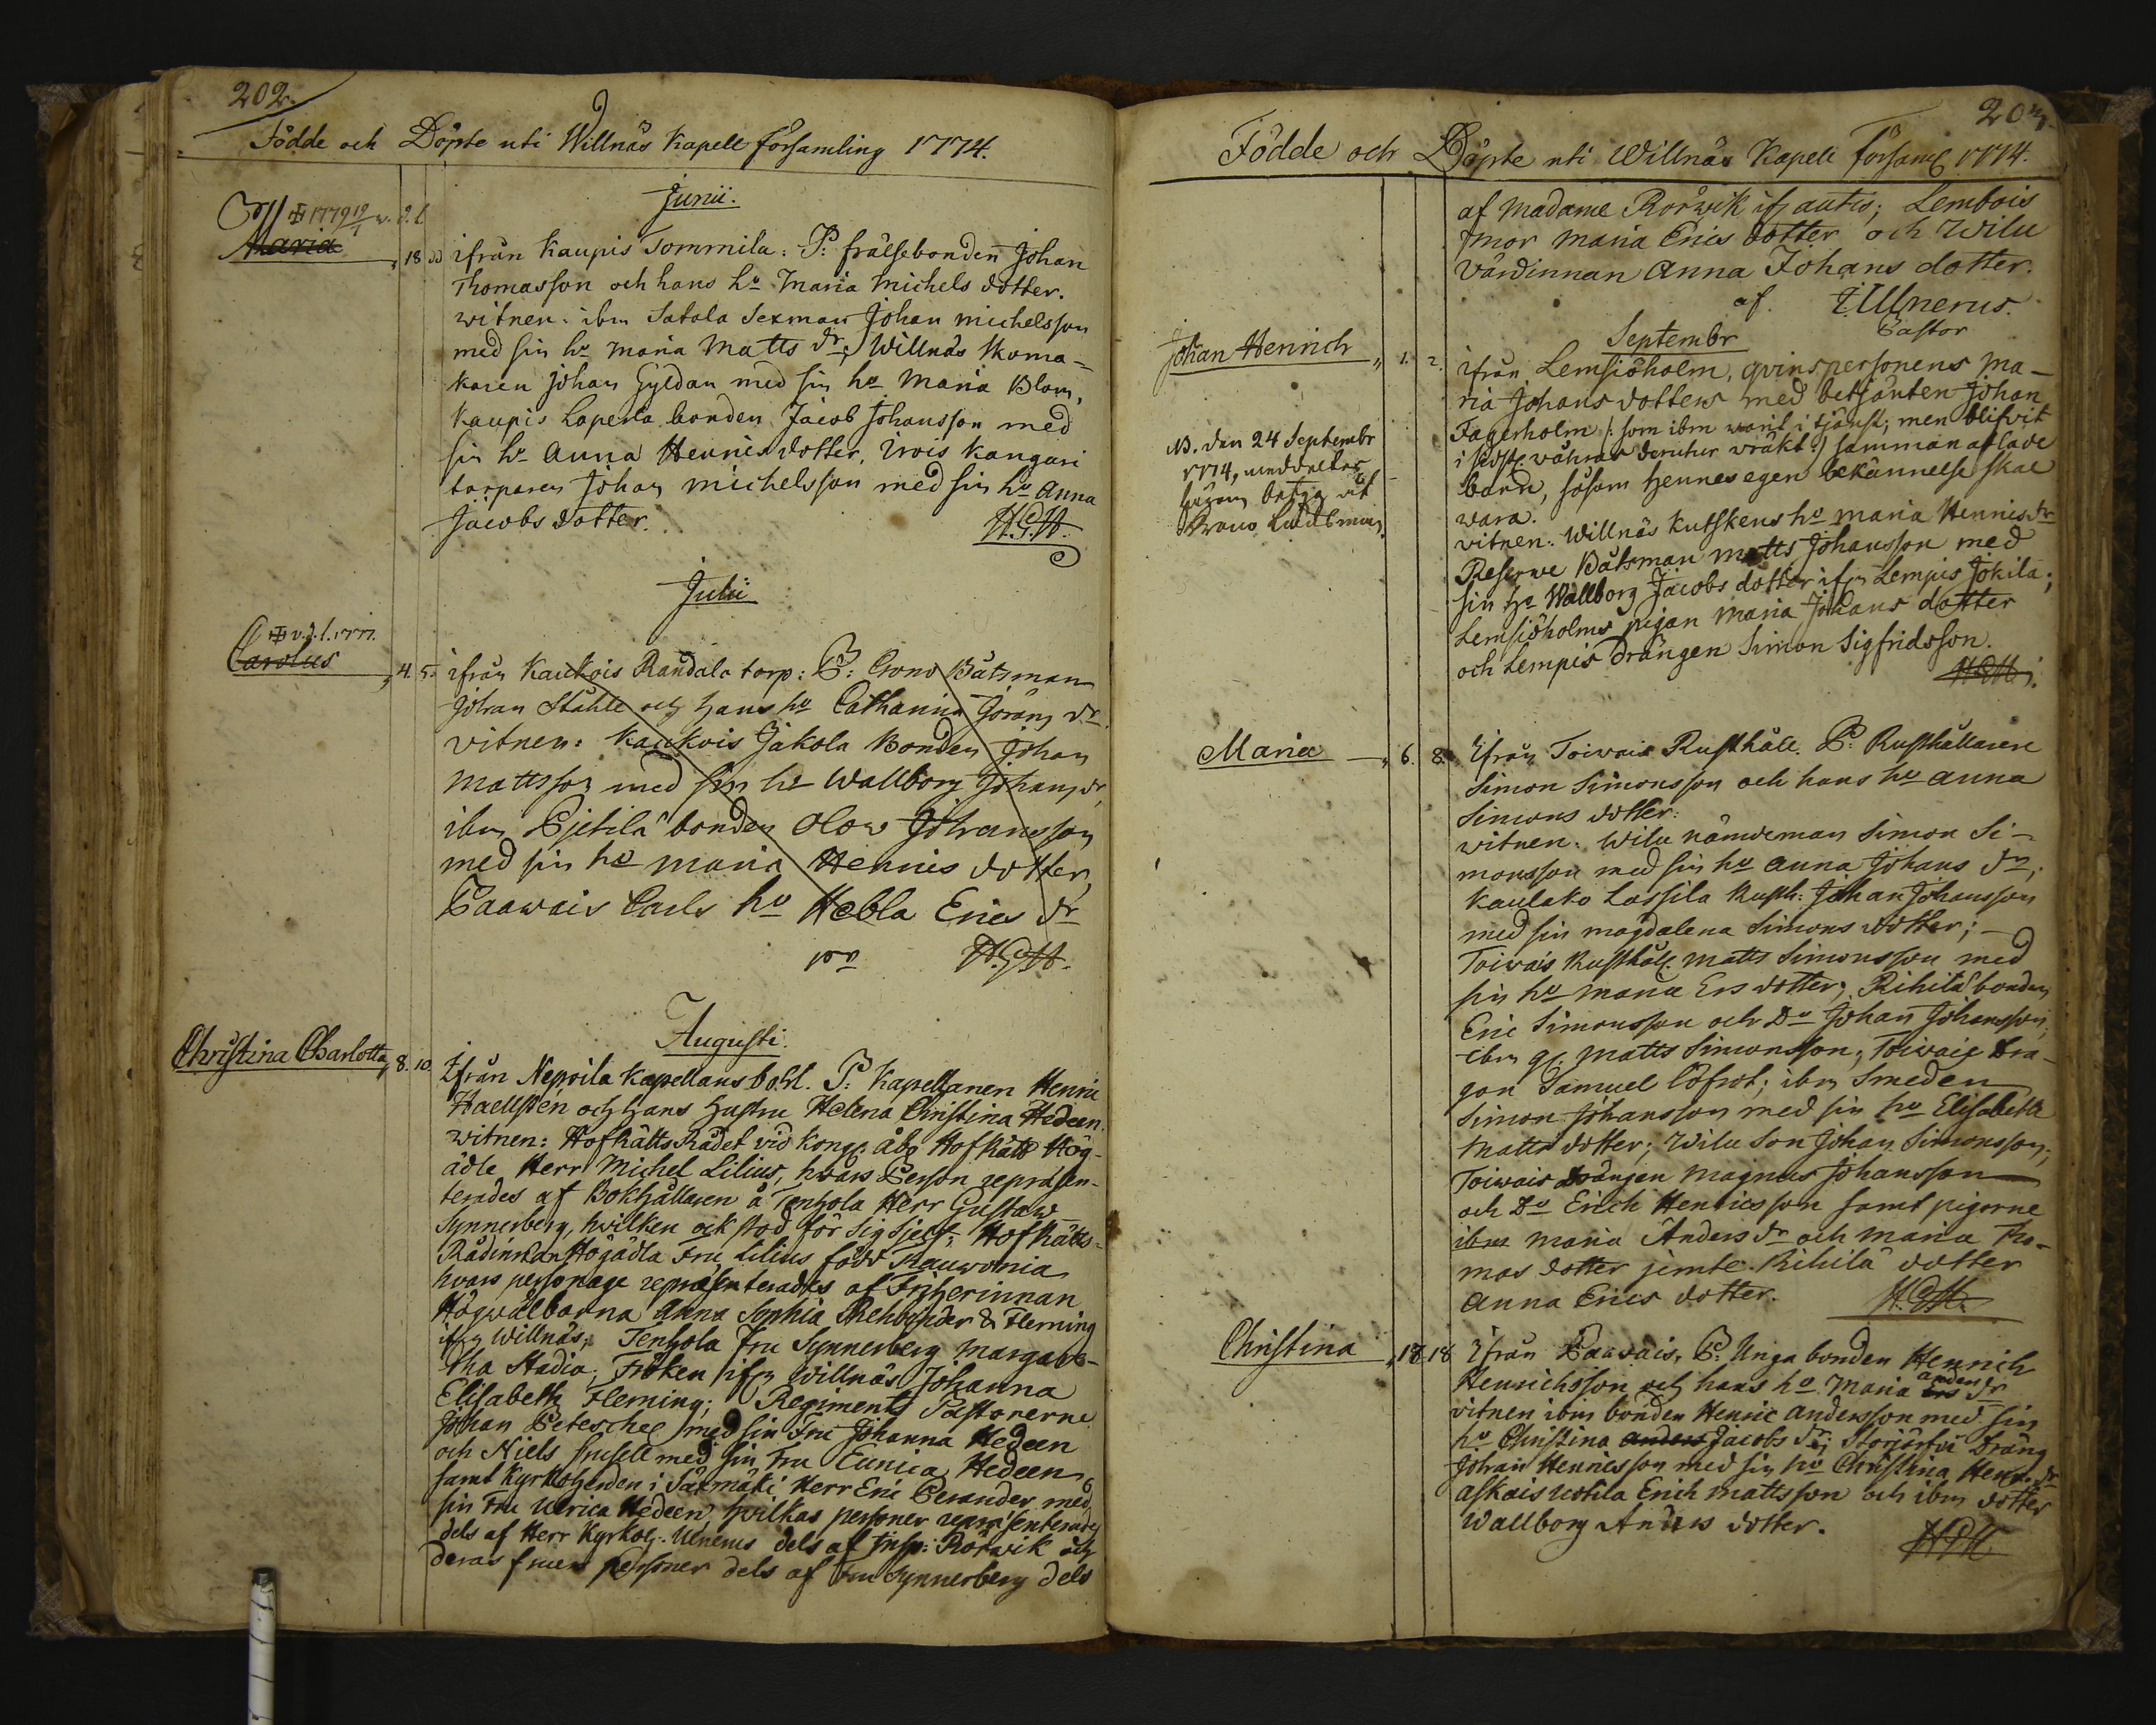 202.
Födde och Döpte uti Willnäs Kapell församling 1774.
Junii.
1779 19/1 v. d. l.
Maria
18 ifrån Kaupis Tommila: P: frälsebonden Johan
Thomasson och hans hu Maria Michels dotter.
witnen: ibm Satala Sexman Johan Michelsson
med sin hu Maria Matts dr; Willnäs Skoma-
karen Johan Gyldan med sin hu Maria Blom,
Kaupis Laperla bonden Jacob Johansson med
sin hu Anna Henrics dotter, Irois Kangari
torparen Johan Michelsson med sin hu Anna
Jacobs dotter.
H.G.H.
Julii
v. d. l. 1777.
Carolus
4. 5. ifrån Kaukois Randala torp: P: Crono Båtsman
Johan Ståhle och hans hu Catharina Görans dr.
vitnen: Kaukois Jakola Bonden Johan
Mattsson med sin hu Wallborg Johans dr,
ibm Pjetilä bonden Olow Johansson
med sin hu Maria Henrics dotter,
Paawais Carls hu Hebla Erics dr
H.G.H.
Augusti.
Christina Charlotta
8. 10. Ifrån Nepoila Kapellans bohl. P: Kapellanen Henric
Haellsten och hans hustru Helena Christina Hedeen.
witnen: HofRättsRådet vid Kongl. Åbo HofRätt Hög-
ädle Herr Michel Lilius, hvars Person repræsen-
terades af Bokhållaren å Tenhola Herr Gustaw
Synnerberg, hvilken ock stod för sig sjelf; HofRätts-
Rådinnan Högädla Fru Lilius född Rauwonia
hvars personage repræsenterades af Friherinnan
Högwälborna Anna Sophia Rehbinder & Fleming
ifrn Willnäs; Tenhola Fru Synnerberg Margare-
tha Stadia; Fröken ifrn Willnäs Johanna
Elisabeth Fleming; Regiments Pastorerne
Johan Peteschel med sin Fru Johanna Hedeen
och Niels Husell med sin Fru Eunica Hedeen
samt Kyrkoherden i Säxmäki Herr Eric Perander med
sin Fru Ulrica Hedeen, hvilkas personer repræsenterades
dels af Herr Kyrkoh. Ulnerus dels af Insp: Rorwik och
deras fruers personer dels af Fru Synnerberg dels
203.
Födde och Döpte uti Willnäs Kapell församl 1774.
af Madame Rorwik ifrn autis; Lembois
mor Maria Erics dotter och Wilu
Värdinnan Anna Johans dotter.
af. Ulnerus.
Pastor
Septembr
Johan Henrich
1. 2. ifrån Lemsiöholm, qvinspersonens Ma-
ria Johans dotters med betjänten Johan
Fagerholm /: som ibm warit i tjänst; men blifvit
wräkt :/ samman aflade
barn, såsom hennes egen bekännelse skal
wara.
vitnen: Willnäs Kutskens hu Maria Henrics dr
Reserwe Båtsman Matts Johansson med
sin hu Wallborg Jacobs dotter ifrn Lempis Jokila;
Lemsiöholms pigan Maria Johans dotter
och Lempis drängen Simon Sigfridsson.
H.G.H.
NB. den 24 Septembr
1774, meddeltes
Maria
6. 8. Ifrån Toiwais Rusthåll. P: Rusthållaren
Simon Simonsson och hans hu Anna
Simons dotter.
witnen: Wilu nämdeman Simon Si-
monsson med sin hu Anna Johans dr,
Kaulako Lassila Rusth: Johan Johansson
med sin Magdalena Simons dotter;
Toiwais Rusthåll. Matts Simonsson med
sin hu Maria Ers dotter; Rihilä bonden
Eric Simonsson och Do Johan Johansson,
ibm gl. Matts Simonsson; Toiwais Dra-
gon Samuel Löfrot; ibm Smeden
Simon Johansson med sin hu Elisabeth
Matts dotter; Wilu Son Johan Simonsson;
Toiwais drängen Magnus Johansson
och Do Erich Henricsson samt pigorne
ibm Maria Anders dr och Maria Tho-
mas dotter jemte Rihilä dotter
Anna Erics dotter.
H.G.H.
Christina
18 18 Ifrån Paavais, P: Unga bonden Henrich
Henrichsson och hans hu Maria Ers anders dr
vitnen ibm bonden Henric Andersson med sin
hu Christina anders Jacobs dr; Storjärfvi Dräng
Johan Henricsson med sin hu Christina Henr. dr
Askais Uotila Erich Mattsson och ibm dotter
Wallborg Anders dotter.
H.G.H.